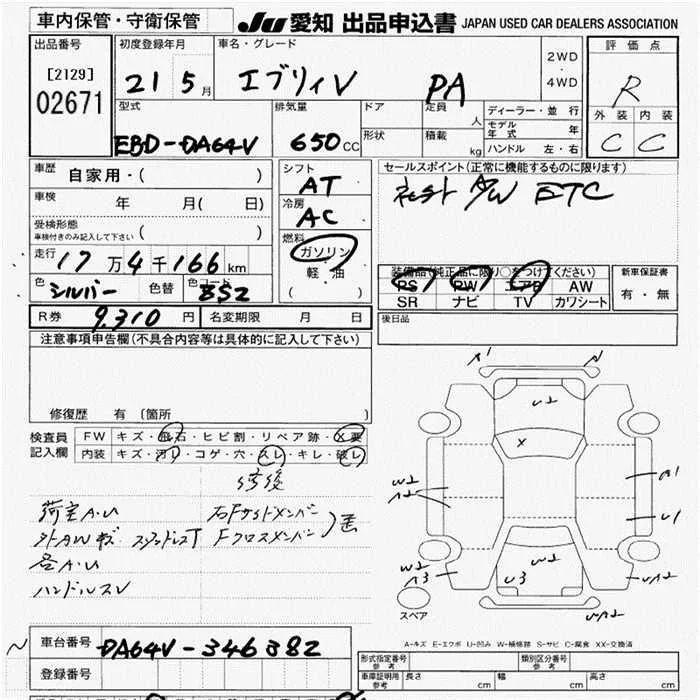 車内保管・守衛保管 JU 愛知 出品申込書 JAPAN USED CAR DEALERS ASSOCIATION
出品番号 初度登録年月 車名・グレード 2WD・4WD 評価点
[2129] 21 5月 エブリィV PA R
02671
外装 内装
型式 排気量 ドア 定員 人 ディーラー・並行
EBD-DA64V 650cc 形状 積載 kg モデル年式 年
ハンドル 左・右 C C
車歴 自家用・( ) シフト AT セールスポイント(正常に機能するものに限ります)
車検 年 月( 日) 冷房 AC A/W ETC
受検形態
車検付きのみ記入して下さい ( ) 燃料 ガソリン
走行 17万4千166km 軽・油 装備品(純正品に限り○をつけてください) 新車保証書
色 シルバー 色替 色コード BS2 ( ) PS PW エアB AW 有・無
SR ナビ TV カワシート
R券 9,310円 名変期限 月 日 後日品
注意事項申告欄(不具合内容等は具体的に記入して下さい)
修復歴 有(箇所
検査員記入欄 FW キズ・飛石・ヒビ割・リペア跡・X要
内装 キズ・汚レ・コゲ・穴・スレ・キレ・破レ
修復
荷室A.U 右Fサイドメンバー
外AWキズ Fクロスメンバー
各A.U
ハンドルスレ
A1
U2
X
W2
A2
A1
U1
W2
A3
U3
W2
UA2
UA2
スペア
A-キズ E-エクボ U-凹み W-補修跡 S-サビ C-腐食 XX-交換済
車台番号 DA64V-346382
登録番号
形式指定番号 参考 類別区分番号 参考
車庫証明用 参考 長さ cm 幅 cm 高さ cm